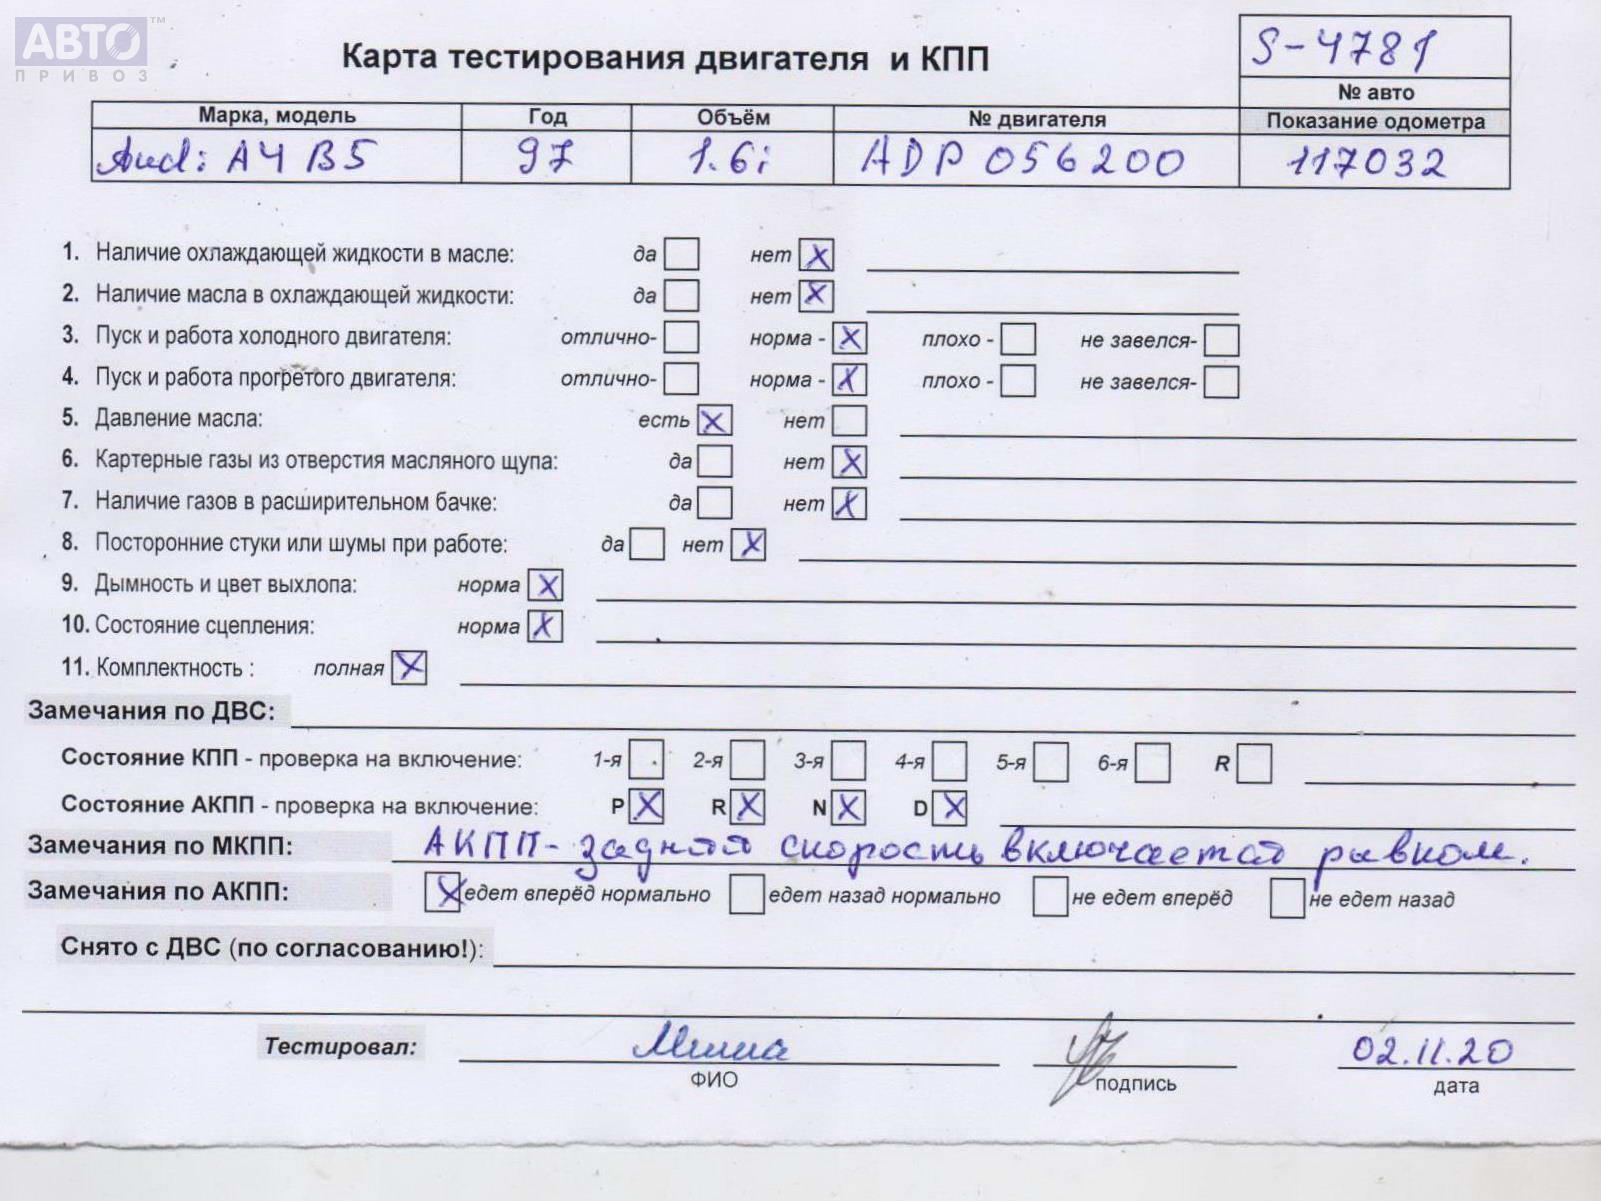 АВТО ™
ПРИВОЗ
Карта тестирования двигателя и КПП
S-4781
№ авто
Марка, модель Год Объём № двигателя Показание одометра
Audi A4 B5 97 1.6i ADP 056200 117032
1. Наличие охлаждающей жидкости в масле: да нет X
2. Наличие масла в охлаждающей жидкости: да нет X
3. Пуск и работа холодного двигателя: отлично- норма - X плохо - не завелся-
4. Пуск и работа прогретого двигателя: отлично- норма - X плохо - не завелся-
5. Давление масла: есть X нет
6. Картерные газы из отверстия масляного щупа: да нет X
7. Наличие газов в расширительном бачке: да нет X
8. Посторонние стуки или шумы при работе: да нет X
9. Дымность и цвет выхлопа: норма X
10. Состояние сцепления: норма X
11. Комплектность : полная X
Замечания по ДВС:
Состояние КПП - проверка на включение: 1-я 2-я 3-я 4-я 5-я 6-я R
Состояние АКПП - проверка на включение: P X R X N X D X
Замечания по МКПП: АКПП - задняя скорость включается рывком.
Замечания по АКПП: X едет вперёд нормально едет назад нормально не едет вперёд не едет назад
Снято с ДВС (по согласованию!):
Тестировал: Миша 02.11.20
ФИО подпись дата